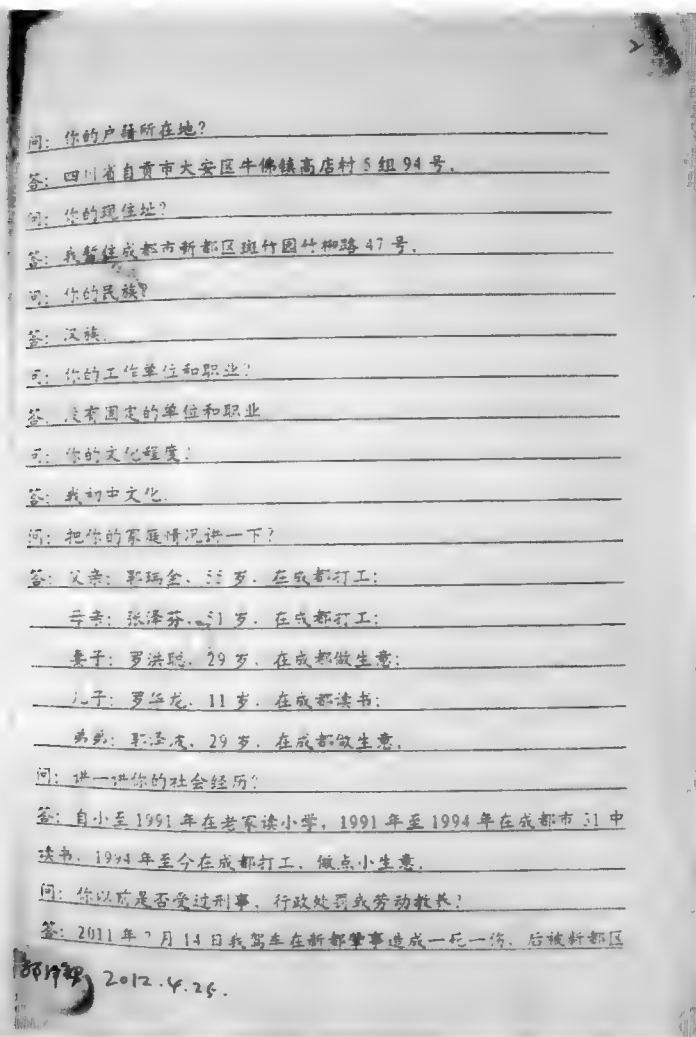 2
问：你的户籍所在地？
答：四川省自贡市大安区牛佛镇高店村5组94号。
问：你的现住址？
答：我暂住成都市新都区斑竹园竹柳路47号。
问：你的民族？
答：汉族。
问：你的工作单位和职业？
答：没有固定的单位和职业
问：你的文化程度？
答：我初中文化。
问：把你的家庭情况讲一下？
答：父亲：郭瑞全，岁，在成都打工；
母亲：张泽芬，51岁，在成都打工；
妻子：罗洪聪，29岁，在成都做生意；
儿子：罗龙，11岁，在成都读书；
弟弟：郭泽，29岁，在成都做生意。
问：讲一讲你的社会经历？
答：自小至1991年在老家读小学，1991年至1994年在成都市31中
读书，1994年至今在成都打工、做点小生意。
问：你以前是否受过刑事、行政处罚或劳动教养？
答：2011年月14日我驾车在新都肇事造成一死一伤，后被新都区
2012.4.25.